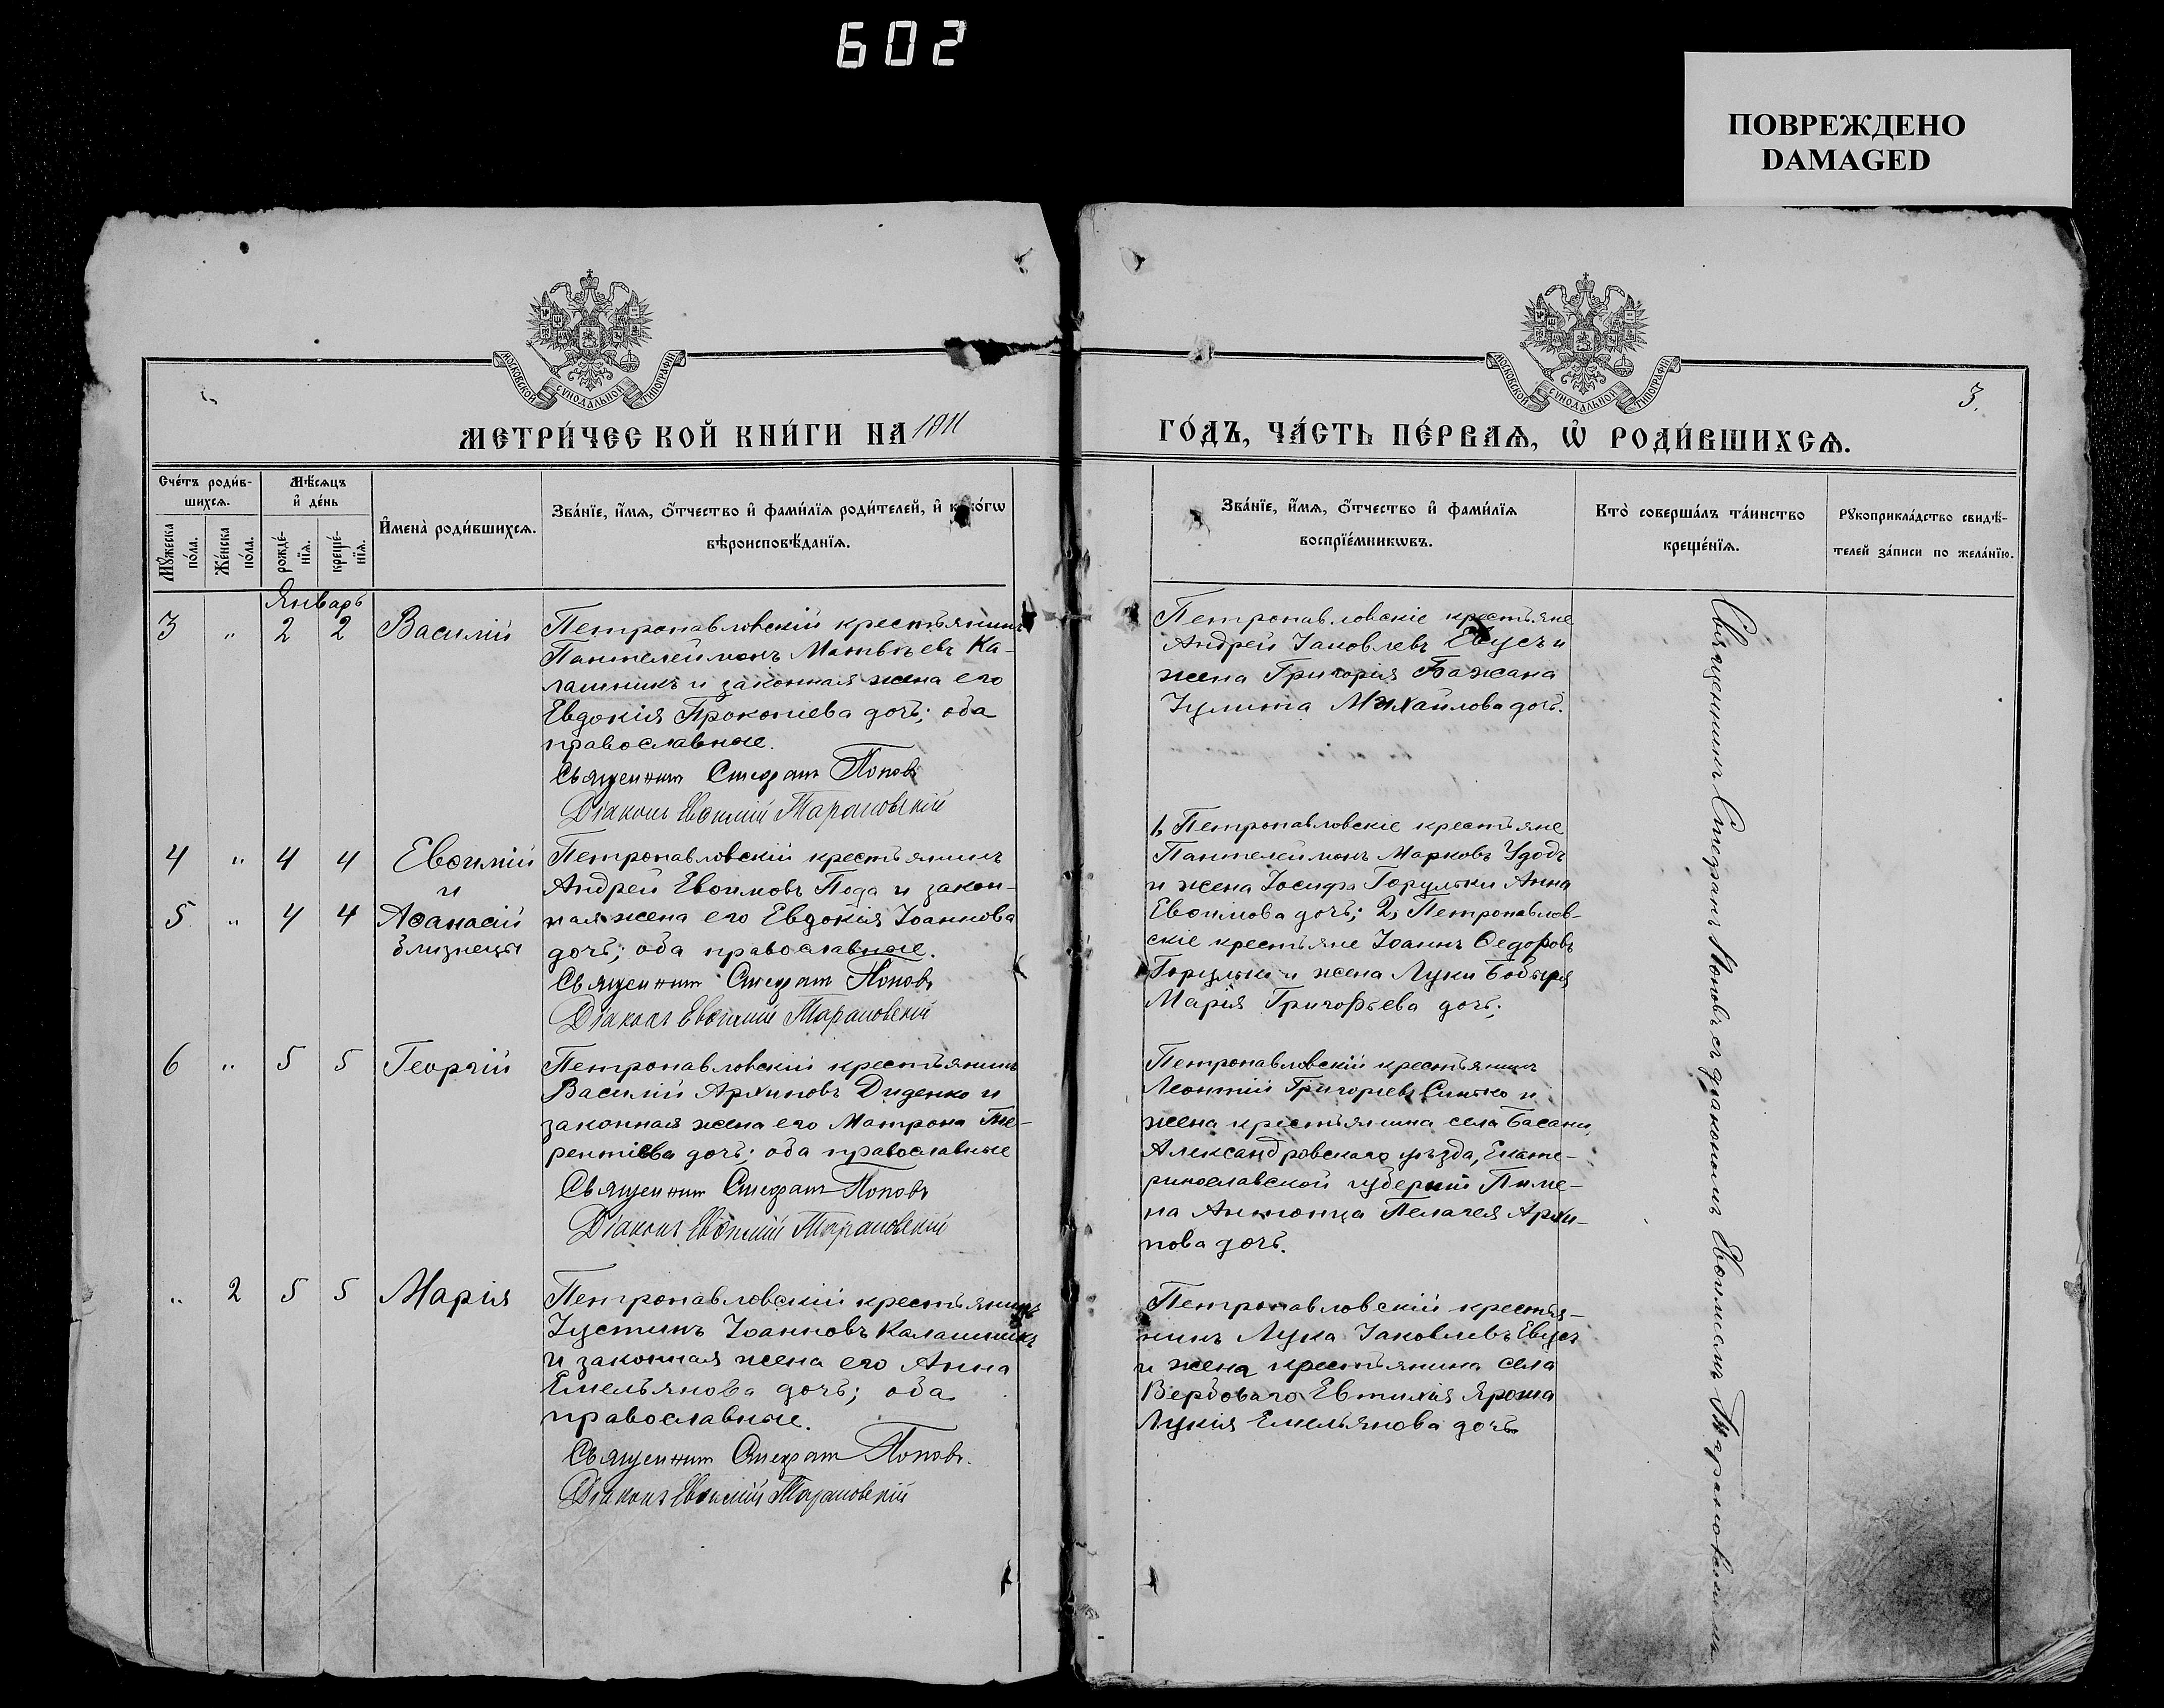 602
ПОВРЕЖДЕНО
DAMAGED
МОСКОВСКОЙ СѴНОДАЛЬНОЙ ТИПОГРАФІИ
МОСКОВСКОЙ СѴНОДАЛЬНОЙ ТИПОГРАФІИ
3.
МЕТРИ́ЧЕСКОЙ КНИ́ГИ НА 1911
ГО́ДЪ, ЧА́СТЬ ПЕ́РВАѦ, Ѡ҆ РОДИ́ВШИХСѦ.
Сче́тъ роди́в-
шихсѧ.
Мꙋ́жеска
по́ла.
Же́нска
по́ла.
Мѣ́сѧцъ
и҆ де́нь
рожде́-
нїѧ.
креще́-
нїѧ.
И҆мена̀ роди́вшихсѧ.
Зва́нїе, и҆́мѧ, ѻ҆́тчество и҆ фами́лїѧ роди́телей, и҆ како́гѡ
вѣроисповѣ́данїѧ.
Зва́нїе, и҆́мѧ, ѻ҆́тчество и҆ фами́лїѧ
воспрїе́мникѡвъ.
Кто̀ соверша́лъ та́инство
креще́нїѧ.
Рꙋкоприкла́дство свидѣ́-
телей за́писи по жела́нїю.
Январь
3 " 2 2 Василій
Петропавловскій крестьянинъ
Пантелеймонъ Матвѣевъ Ка-
лашникъ и законная жена его
Евдокія Прокопіева дочь; оба
православные.
Священникъ Стефанъ Поповъ
Діаконъ Евѳимій Тарановскій
Петропавловскіе крестьяне
Андрей Іаковлевъ Евусъ и
жена Григорія Бажана
Іулита Михайлова дочь.
4 " 4 4 Евѳимій
и
5 " 4 4 Аѳанасій
близнецы
Петропавловскій крестьянинъ
Андрей Евѳимовъ Пода и закон-
ная жена его Евдокія Іоаннова
дочь; оба православные.
Священникъ Стефанъ Поповъ
Діаконъ Евѳимій Тарановскій
1, Петропавловскіе крестьяне
Пантелеймонъ Марковъ Удодъ
и жена Іосифа Горульки Анна
Евѳимова дочь; 2, Петропавлов-
скіе крестьяне Іоаннъ Ѳедоровъ
Горулько и жена Луки Бобыря
Марія Григорьева дочь;
6 " 5 5 Георгій
Петропавловскій крестьянинъ
Василій Архиповъ Диденко и
законная жена его Матрона Те-
рентіева дочь; оба православные
Священникъ Стефанъ Поповъ
Діаконъ Евѳимій Тарановскій
Петропавловскій крестьянинъ
Леонтій Григорьевъ Синько и
жена крестьянина села Басани,
Александровскаго уѣзда, Екате-
ринославской губерніи Пиме-
на Антонца Пелагея Архи-
пова дочь.
" 2 5 5 Марія
Петропавловскій крестьянинъ
Іустинъ Іоанновъ Калашникъ
и законная жена его Анна
Емельянова дочь; оба
православные.
Священникъ Стефанъ Поповъ.
Діаконъ Евѳимій Тарановскій
Петропавловскій крестья-
нинъ Лука Іаковлевъ Евусъ
и жена крестьянина села
Вербоваго Евтихія Яроша
Лукія Емельянова дочь
Священникъ Стефанъ Поповъ съ діакономъ Евѳиміемъ Тарановскимъ.